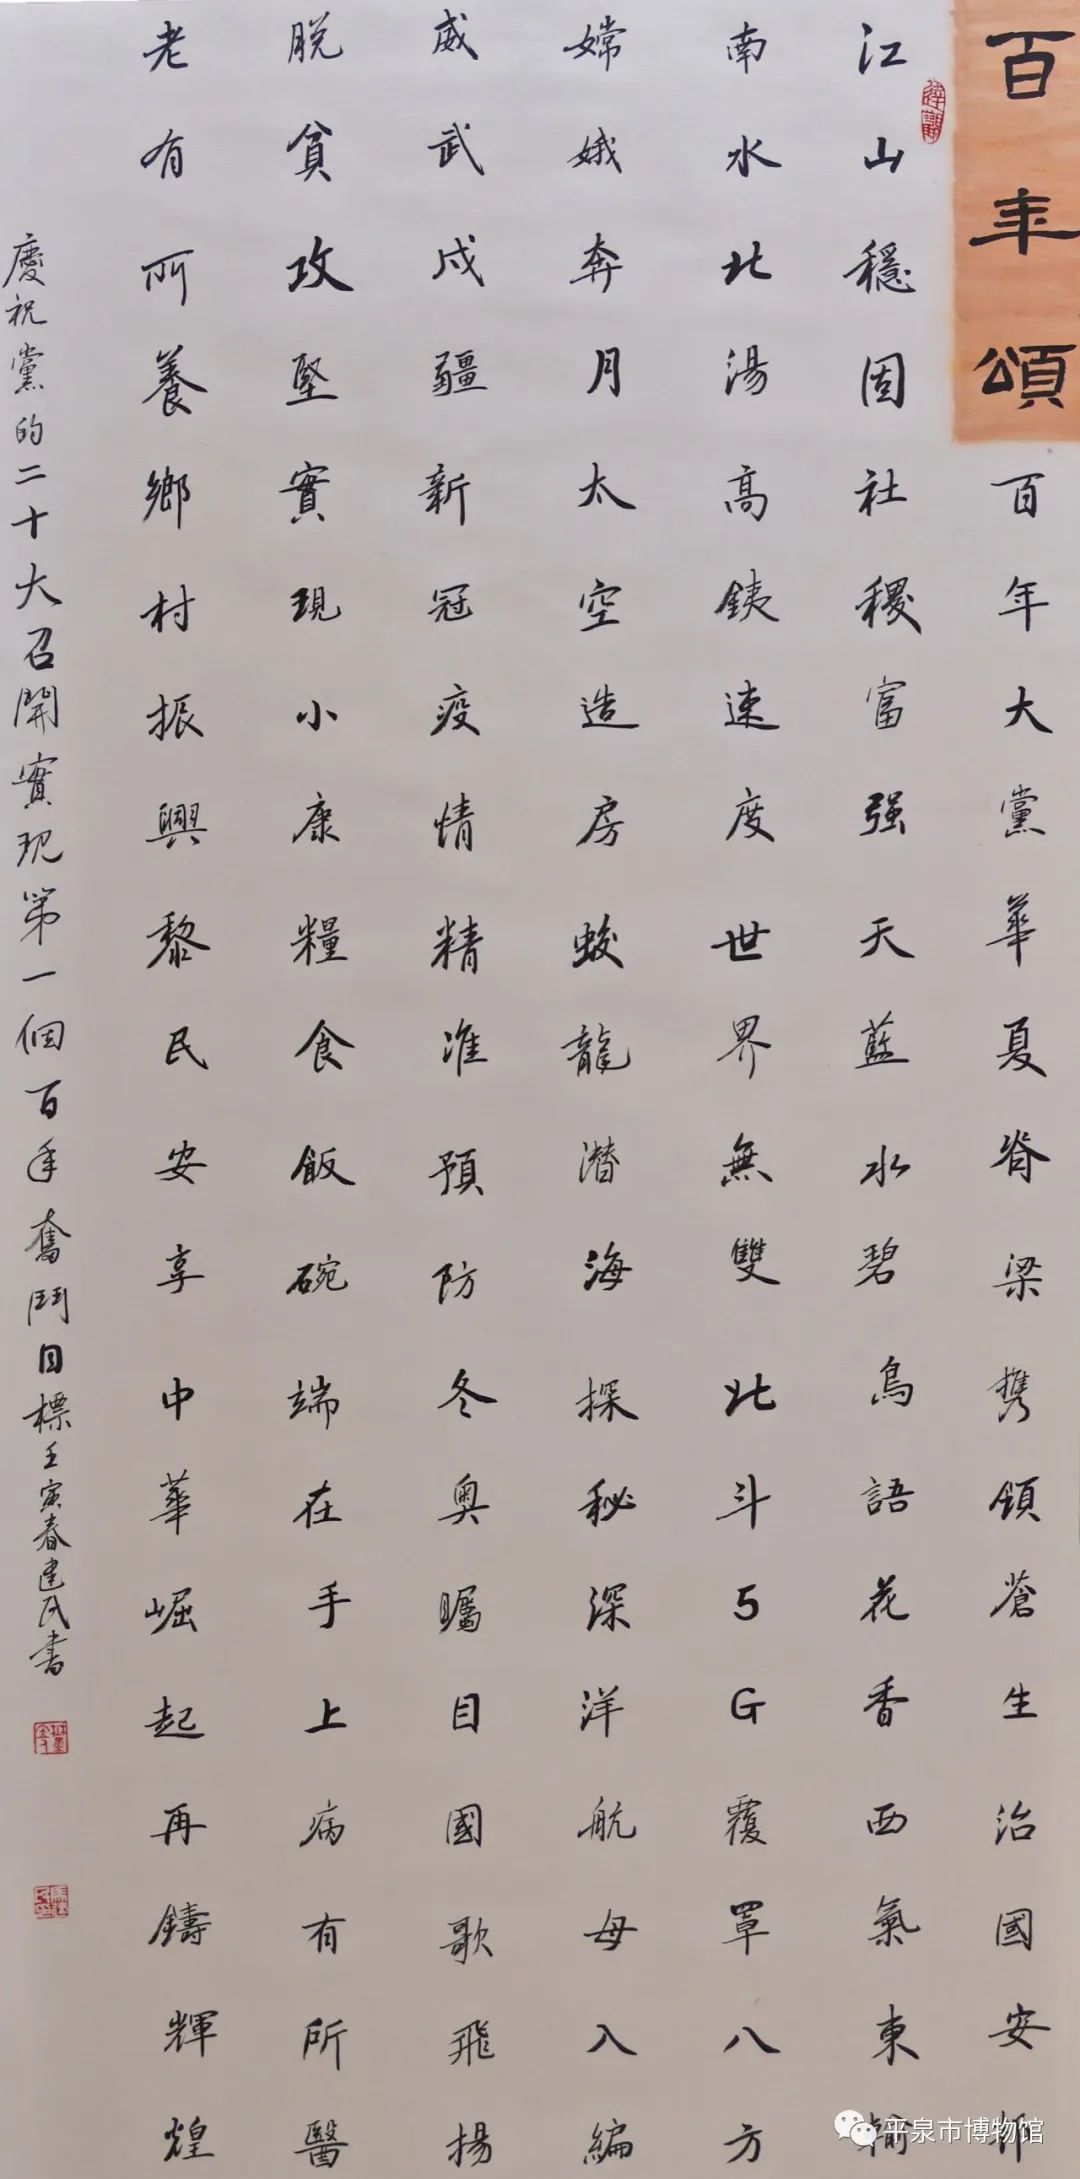 百年頌
百年大黨華夏脊梁携領蒼生治國安邦
江山穩固社稷富强天藍水碧鳥語花香西氣東輸
南水北湯高銕速度世界無雙北斗5G覆罩八方
嫦娥奔月太空造房蛟龍潜海探秘深洋航母入編
威武戍疆新冠疫情精准預防冬奥矚目國歌飛揚
脱貧攻堅實現小康糧食飯碗端在手上病有所醫
老有所養鄉村振興黎民安享中華崛起再鑄輝煌
慶祝黨的二十大召開實現第一個百年奮鬥目標壬寅春建民書
平泉市博物馆